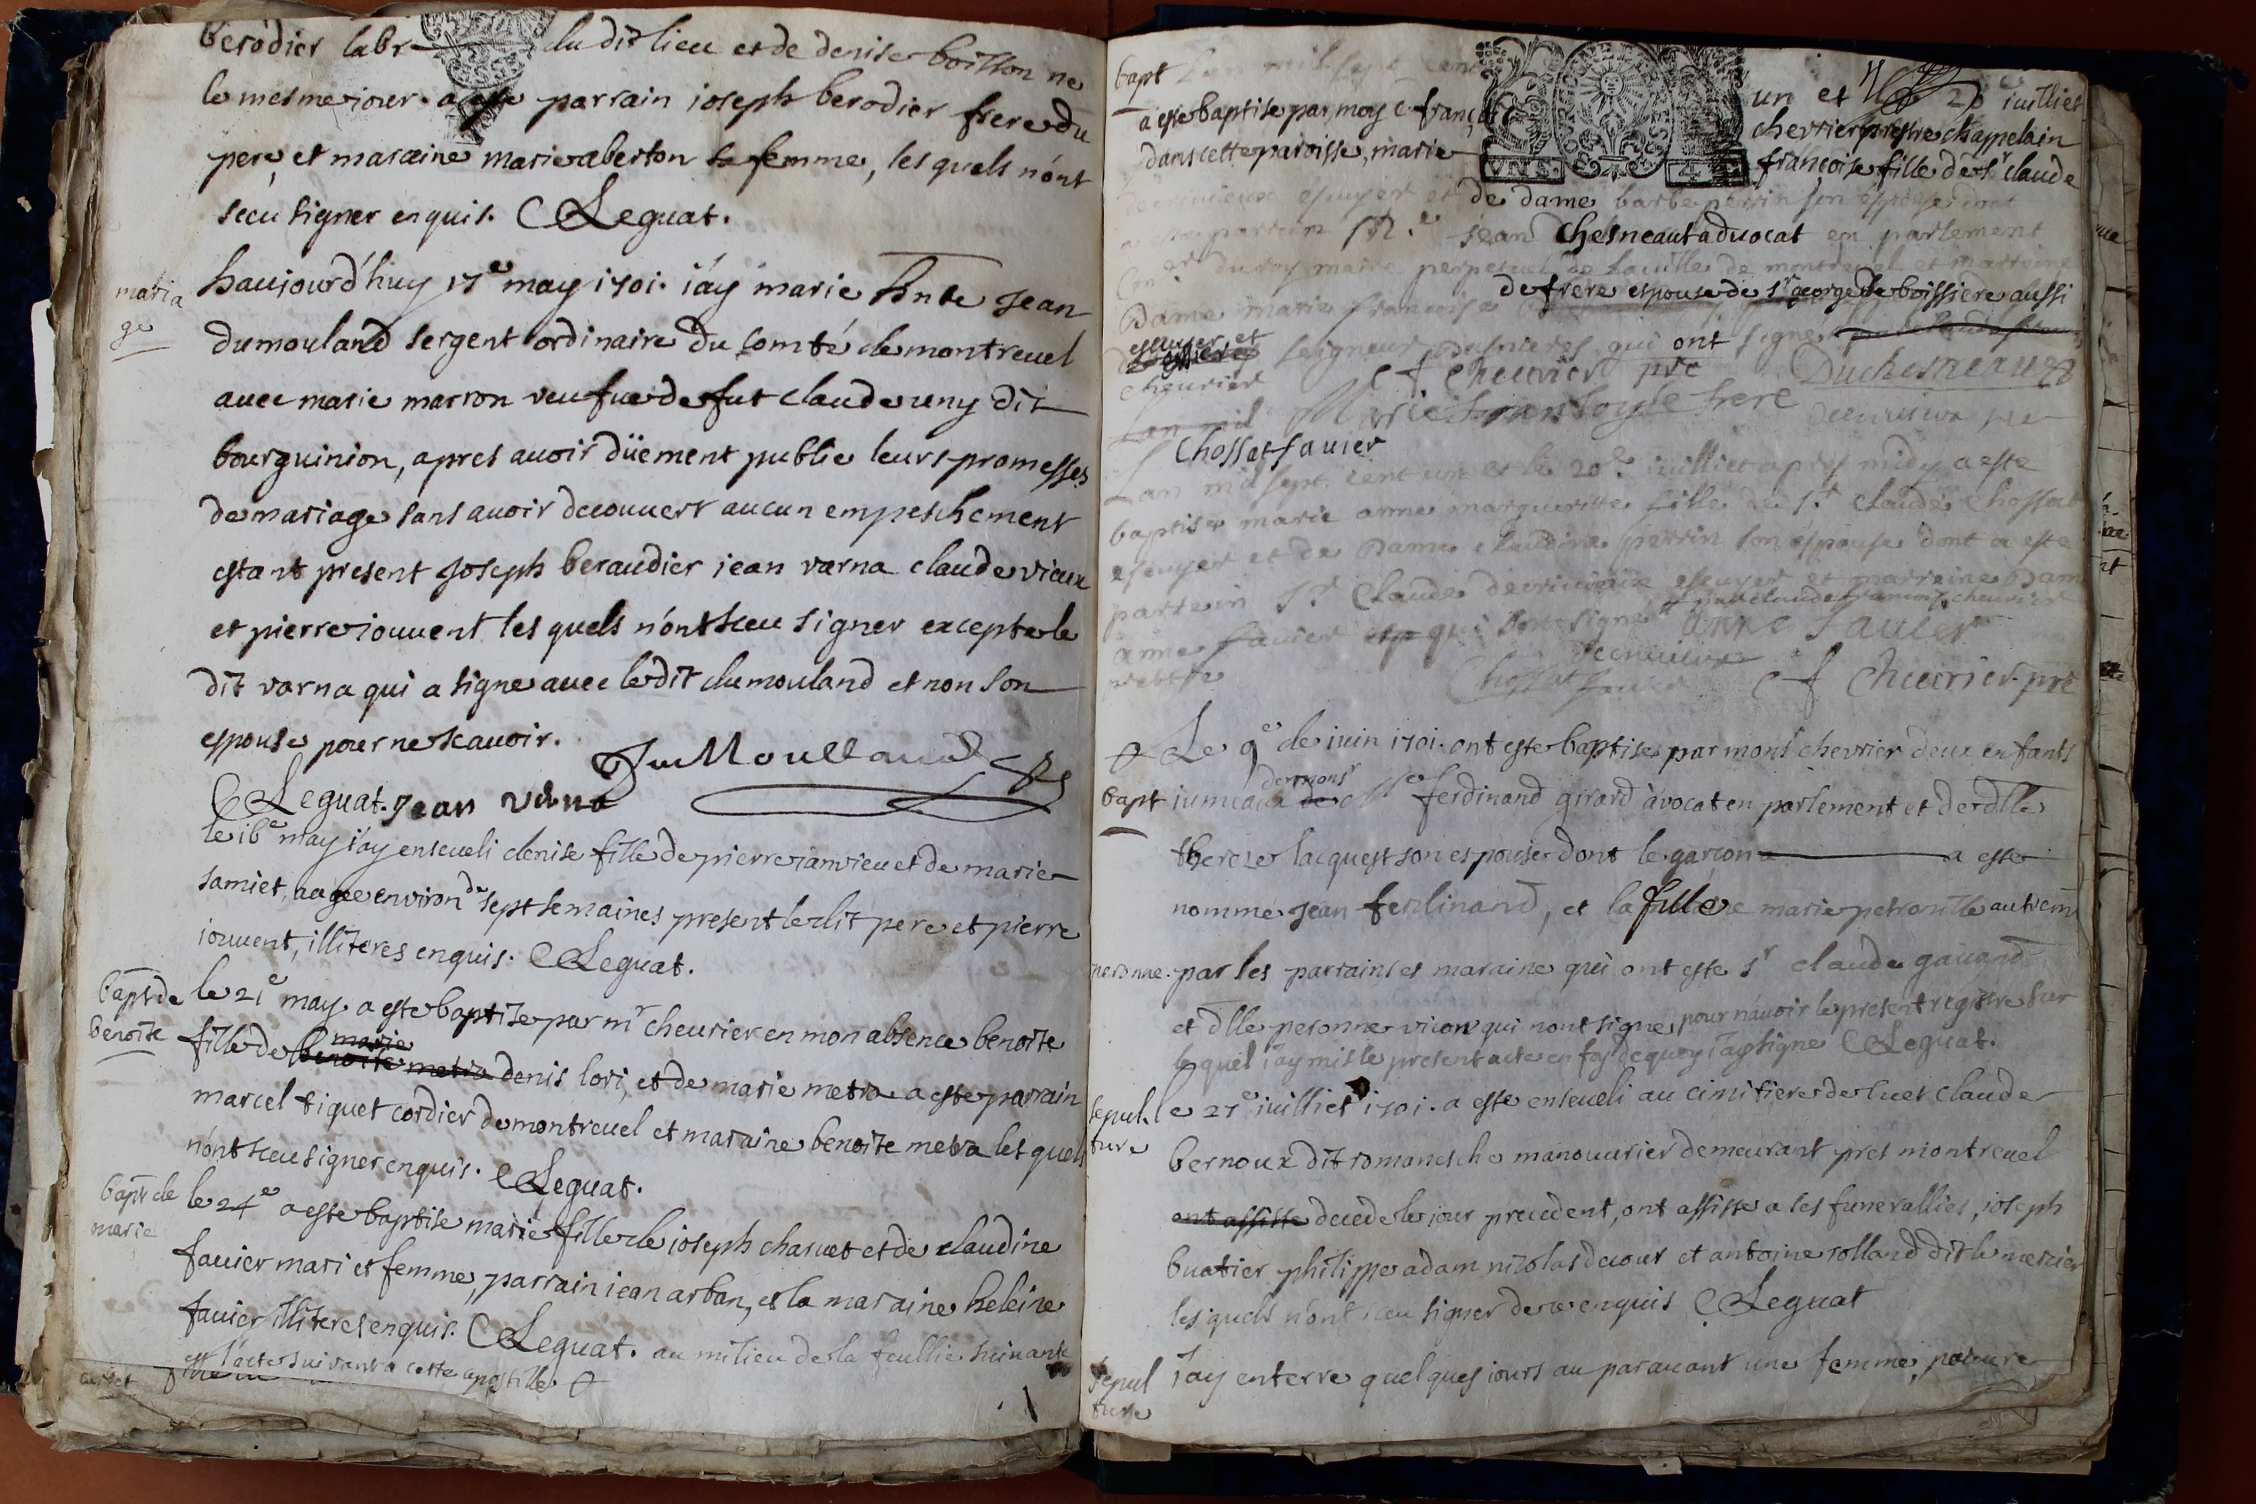 berodier labr du dit lieu et de denise boisson ne
le mesme jour. a este parrain joseph berodier frere du
pere, et maraine marie aberton sa femme, les quels n'ont
sceu signer enquis. Leguat.
maria
ge
haujourd'huy 17e may 1701. j'ay marie hnte Jean
dumouland sergent ordinaire du comté de montrevel
avec marie marron veufue de fut claude ueny dit
bourguinion, apres avoir düement publie leurs promesses
de mariage sans avoir decouvert aucun empeschement
estant present Joseph beraudier jean varna claude vieux
et pierre jouvent les quels n'ont sceu signer excepte le
dit varna qui a signe avec le dit dumouland et non son
espouse pour ne scavoir.
DuMoulland
Leguat. Jean varna
le 18e may j'ay enseveli denise fille de pierre janvieu et de marie
samiet, aagee environ de sept semaines present le dit pere et pierre
jouvent, illiteres enquis. Leguat.
bapt de
benoite
le 21e may a este baptise par mr cheurier en mon absence benoite
marie
fille de benoite metra denis lori, et de marie metra a este parrain
marcel tiquet cordier de montrevel et maraine benoite metra les quels
n'ont sceu signer enquis. Leguat.
bapt de
marie
le 24e a este baptise marie fille de joseph charvet et de claudine
favier mari et femme, parrain jean arban, et la maraine heleine
favier illiteres enquis. Leguat. au milieu de la feuillie suivante
l'acte suivant a cette apostille
bapt
L mil sept cent un et 20 juilliet
a este baptise par moy c françois chevrier prestre chappelain
dans cette paroisse, marie françoise fille de sr claude
decrivieux escuyer et de dame barbe perrin son espouse dont
a este parrain Mre Jean Chesneaut advocat en parlement
Coner du roy maire perpetuel de la ville de montrevel et marraine
Dame marie francoise de frere espouse de sr george de boissiere aussi
escuyer et
seigneur qui ont signe
cheurier
c f cheurier pre Duchesneau
Lan mil Marie franßoyse frere decrivieux
Chossat favier
Lan mil sept cent un et le 20e juilliet apres midy a este
baptisee marie anne margueritte fille de sr Claude Chossat
escuyer et de Dame claudine perrin son espouse dont a este
parrein sr Claude decrivieux escuyer et marreine Dame
par claude francois cheurier
anne favier qui ont signe anne favier
decrivieux
Chossat favier c f Cheurier. pre
Le 9e de juin 1701. ont este baptises par monsr chevrier deux enfants
de monsr
bapt
jumeaux de ferdinand girard avocat en parlement et de dlle
therese lacquest son espouse dont le garcon a este
nommé Jean ferdinand, et la fille marie petronille autrem
peronne. par les parrains et maraine qui ont este sr claude gavand
et dlle peronne vicon qui n'ont signe, pour n'avoir le present registre sur
lequel j'ay mis le present acte en foy de quoy j'ay signe Leguat.
sepul
ture
le 27e juilliet 1701. a este enseveli au cimitiere de luet claude
bernoux dit romanesche manouvrier demeurant pres montrevel
ont assiste decede le jour precedent, ont assiste a ses funerallies, joseph
buatier philippe adam nicolas decour et antoine rolland dit le mercier
les quels n'ont sceu signer de ce enquis Leguat
sepul
ture
J'ay enterre quelques jours au paravant une femme, pauvre